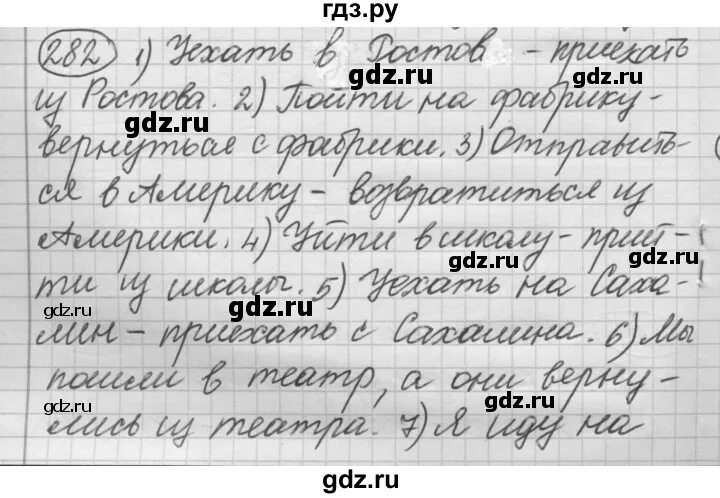 гдз.ру
282 1) Уехать в Ростов - приехать
из Ростова. 2) Пойти на фабрику -
вернуться с фабрики. 3) Отправить-
ся в Америку - возвратиться из
Америки. 4) Уйти в школу - прий-
ти из школы. 5) Уехать на Саха-
лин - приехать с Сахалина. 6) Мы
пошли в театр, а они верну-
лись из театра. 7) Я иду на
gdz.ru
gdz.ru
gdz.ru
gdz.ru
gdz.ru
gdz.ru
gdz.ru
gdz.ru
gdz.ru
gdz.ru
gdz.ru
gdz.ru